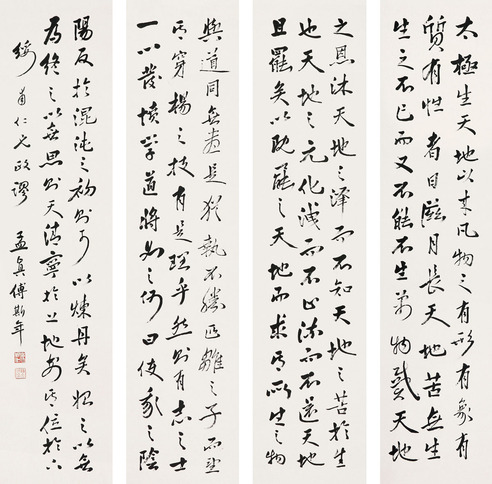 太極生天地以其凡物之有形有象有
質有性者日滋月長天地苦無生
生之不已而又不能不生萬物戴天地
之恩沐天地之澤而不知天地之苦於生
也天地之元化洩而不止流而不還天地
且罷矣以耽罷之天地而求為所生之物
與道同無盡是猶執不勝匹雛之子而望
為穿楊之技有是理乎然則有志之士
一心發憤學道將如之何曰使我之陰
陽反於混沌之初則可以煉丹矣始之以無
為終之以無思則天清寧於上地安位於下
綬甫仁兄政謬 孟真傅斯年